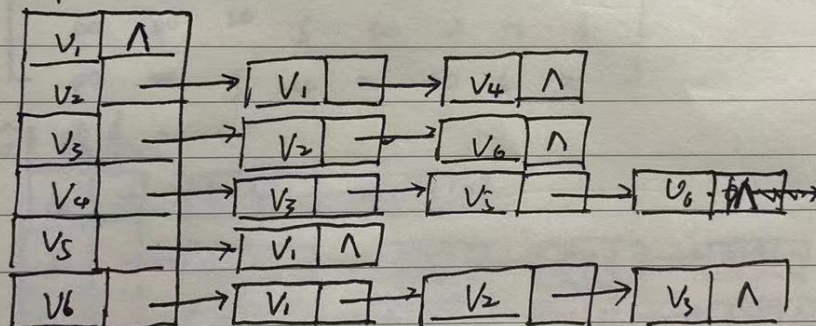 V₁ Λ
V₂ → V₁ → V₄ Λ
V₃ → V₂ → V₆ Λ
V₄ → V₃ → V₅ → V₆ Λ
V₅ → V₁ Λ
V6 → V₁ → V₂ → V₃ Λ